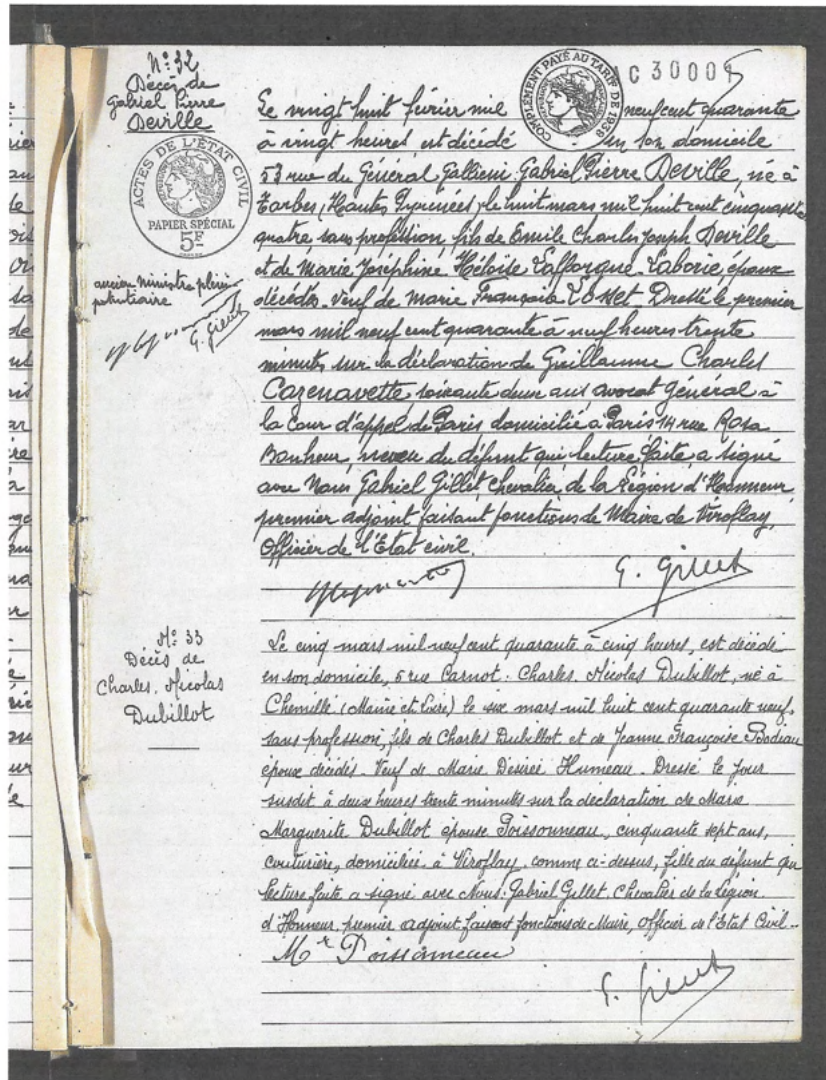 N° 32
Décès de
Gabriel Pierre
Deville
ACTES DE L'ÉTAT CIVIL
PAPIER SPÉCIAL
5F
ancien ministre pléni-
potentiaire
G. Gillet
COMPLÉMENT PAYÉ AU TARIF DE 1938
C 30001
Le vingt huit février mil neuf cent quarante
à vingt heures, est décédé en son domicile
53 rue du Général Gallieni: Gabriel Pierre Deville, né à
Tarbes (Hautes Pyrénées) le huit mars mil huit cent cinquante
quatre sans profession, fils de Emile Charles Joseph Deville
et de Marie Joséphine Héloïse Lafforgue-Laborie époux
décédés. Veuf de Marie Françoise Losset. Dressé le premier
mars mil neuf cent quarante à neuf heures trente
minutes sur la déclaration de Guillaume Charles
Cazenavette, soixante deux ans avocat général à
la Cour d'appel de Paris domicilié à Paris 14 rue Rosa
Bonheur, neveu du défunt qui lecture faite a signé
avec Nous Gabriel Gillet, Chevalier de la Légion d'Honneur
premier adjoint faisant fonctions de Maire de Viroflay,
Officier de l'Etat civil.
G. Gillet
N° 33
Décès de
Charles, Nicolas
Dubillot
Le cinq mars mil neuf cent quarante à cinq heures, est décédé
en son domicile, 5 rue Carnot: Charles, Nicolas Dubillot, né à
Chemillé (Maine et Loire) le six mars mil huit cent quarante neuf,
sans profession, fils de Charles Dubillot et de Jeanne Françoise Bodeau
époux décédés. Veuf de Marie Désirée Humeau. Dressé le jour
susdit à deux heures trente minutes sur la déclaration de Marie
Marguerite Dubillot épouse Poissonneau, cinquante sept ans,
couturière, domiciliée à Viroflay, comme ci-dessus, fille du défunt qui
lecture faite a signé avec Nous: Gabriel Gillet, Chevalier de la Légion
d'Honneur, premier adjoint faisant fonctions de Maire, Officier de l'Etat Civil.
Mr Poissonneau
G. Gillet